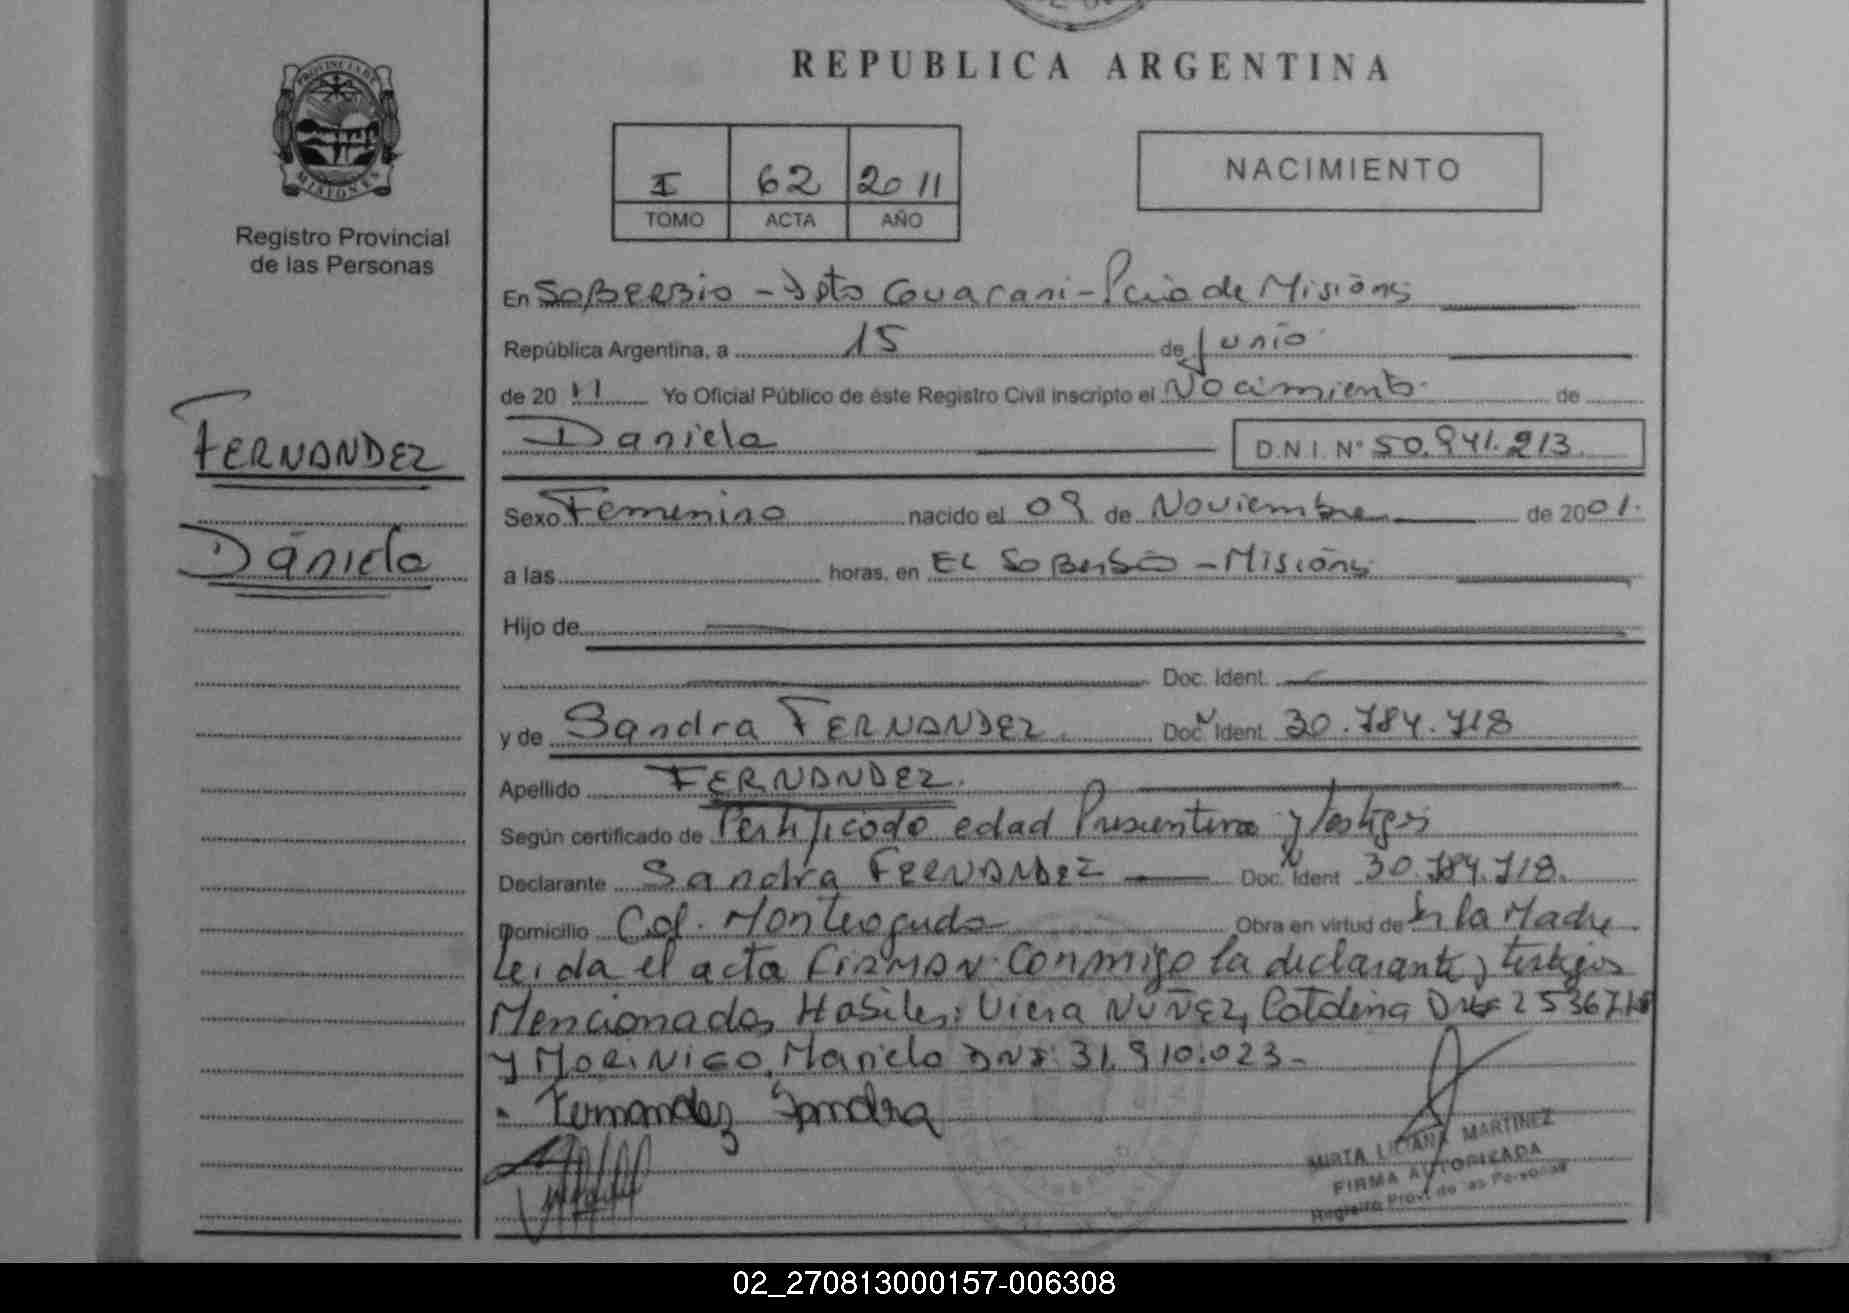 REPUBLICA ARGENTINA
PROVINCIA DE
MISIONES
Registro Provincial
de las Personas
I 62 2011
TOMO ACTA AÑO
NACIMIENTO
En SOBERBIO - Dpto Guarani - Pcia de Misiones
República Argentina, a 15 de Junio
de 2011 Yo Oficial Público de éste Registro Civil inscripto el Nacimiento de
Daniela D.N.I. Nº 50.941.213
FERNANDEZ
Daniela
Sexo Femenino nacido el 09 de Noviembre de 2001.
a las horas, en EL SOBERBIO - Misiones
Hijo de
Doc. Ident.
y de Sandra FERNANDEZ. Doc. Ident. 30.784.718
Apellido FERNANDEZ.
Según certificado de Certificado edad Presuntiva y testigos
Declarante Sandra FERNANDEZ Doc. Ident 30.784.718.
Domicilio Col. Monteagudo Obra en virtud de Ser la Madre
Leida el acta FIRMAN conmigo la declarante y testigos
Mencionados Habiles: Viera NUÑEZ, Catalina DNI
y MORINIGO, Mariela DNI 31.910.023-
Fernandez Sandra
MIRTA LILIANA MARTINEZ
FIRMA AUTORIZADA
Registro Prov. de las Personas
02_270813000157-006308